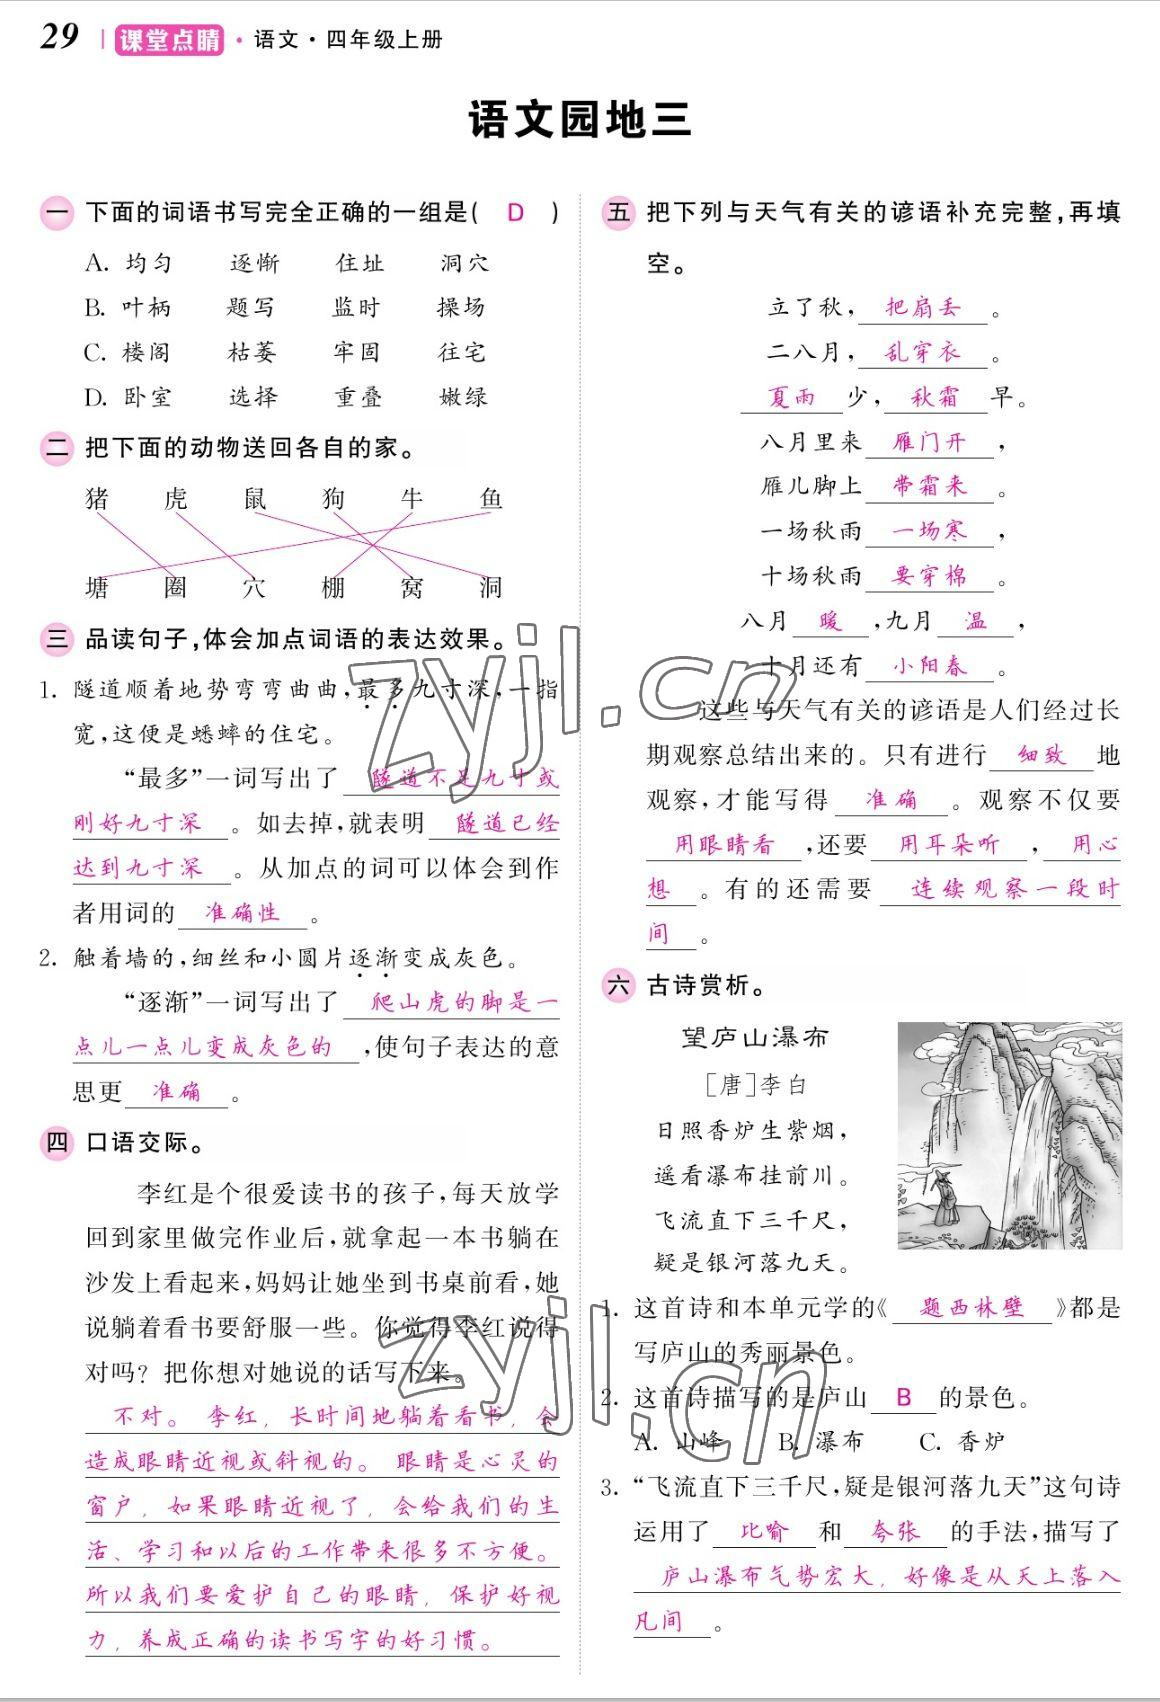 29 课堂点睛·语文·四年级上册
语文园地三
一 下面的词语书写完全正确的一组是( D )
A. 均匀 逐惭 住址 洞穴
B. 叶柄 题写 监时 操场
C. 楼阁 枯萎 牢固 往宅
D. 卧室 选择 重叠 嫩绿
二 把下面的动物送回各自的家。
猪 虎 鼠 狗 牛 鱼
塘 圈 穴 棚 窝 洞
三 品读句子,体会加点词语的表达效果。
1. 隧道顺着地势弯弯曲曲,最多九寸深,一指
宽,这便是蟋蟀的住宅。
“最多”一词写出了 隧道不足九寸或
刚好九寸深 。如去掉,就表明 隧道已经
达到九寸深 。从加点的词可以体会到作
者用词的 准确性 。
2. 触着墙的,细丝和小圆片逐渐变成灰色。
“逐渐”一词写出了 爬山虎的脚是一
点儿一点儿变成灰色的 ,使句子表达的意
思更 准确 。
四 口语交际。
李红是个很爱读书的孩子,每天放学
回到家里做完作业后,就拿起一本书躺在
沙发上看起来,妈妈让她坐到书桌前看,她
说躺着看书要舒服一些。你觉得李红说得
对吗？把你想对她说的话写下来。
不对。李红，长时间地躺着看书，会
造成眼睛近视或斜视的。眼睛是心灵的
窗户，如果眼睛近视了，会给我们的生
活、学习和以后的工作带来很多不方便。
所以我们要爱护自己的眼睛，保护好视
力，养成正确的读书写字的好习惯。
五 把下列与天气有关的谚语补充完整,再填
空。
立了秋, 把扇丢 。
二八月, 乱穿衣 。
夏雨 少, 秋霜 早。
八月里来 雁门开 ,
雁儿脚上 带霜来 。
一场秋雨 一场寒 ,
十场秋雨 要穿棉 。
八月 暖 ,九月 温 ,
十月还有 小阳春 。
这些与天气有关的谚语是人们经过长
期观察总结出来的。只有进行 细致 地
观察,才能写得 准确 。观察不仅要
用眼睛看 ,还要 用耳朵听 , 用心
想 。有的还需要 连续观察一段时
间 。
六 古诗赏析。
望庐山瀑布
[唐]李白
日照香炉生紫烟,
遥看瀑布挂前川。
飞流直下三千尺,
疑是银河落九天。
1. 这首诗和本单元学的《 题西林壁 》都是
写庐山的秀丽景色。
2. 这首诗描写的是庐山 B 的景色。
A. 山峰 B. 瀑布 C. 香炉
3. “飞流直下三千尺,疑是银河落九天”这句诗
运用了 比喻 和 夸张 的手法,描写了
庐山瀑布气势宏大，好像是从天上落入
凡间 。
zyjl.cn
zyjl.cn